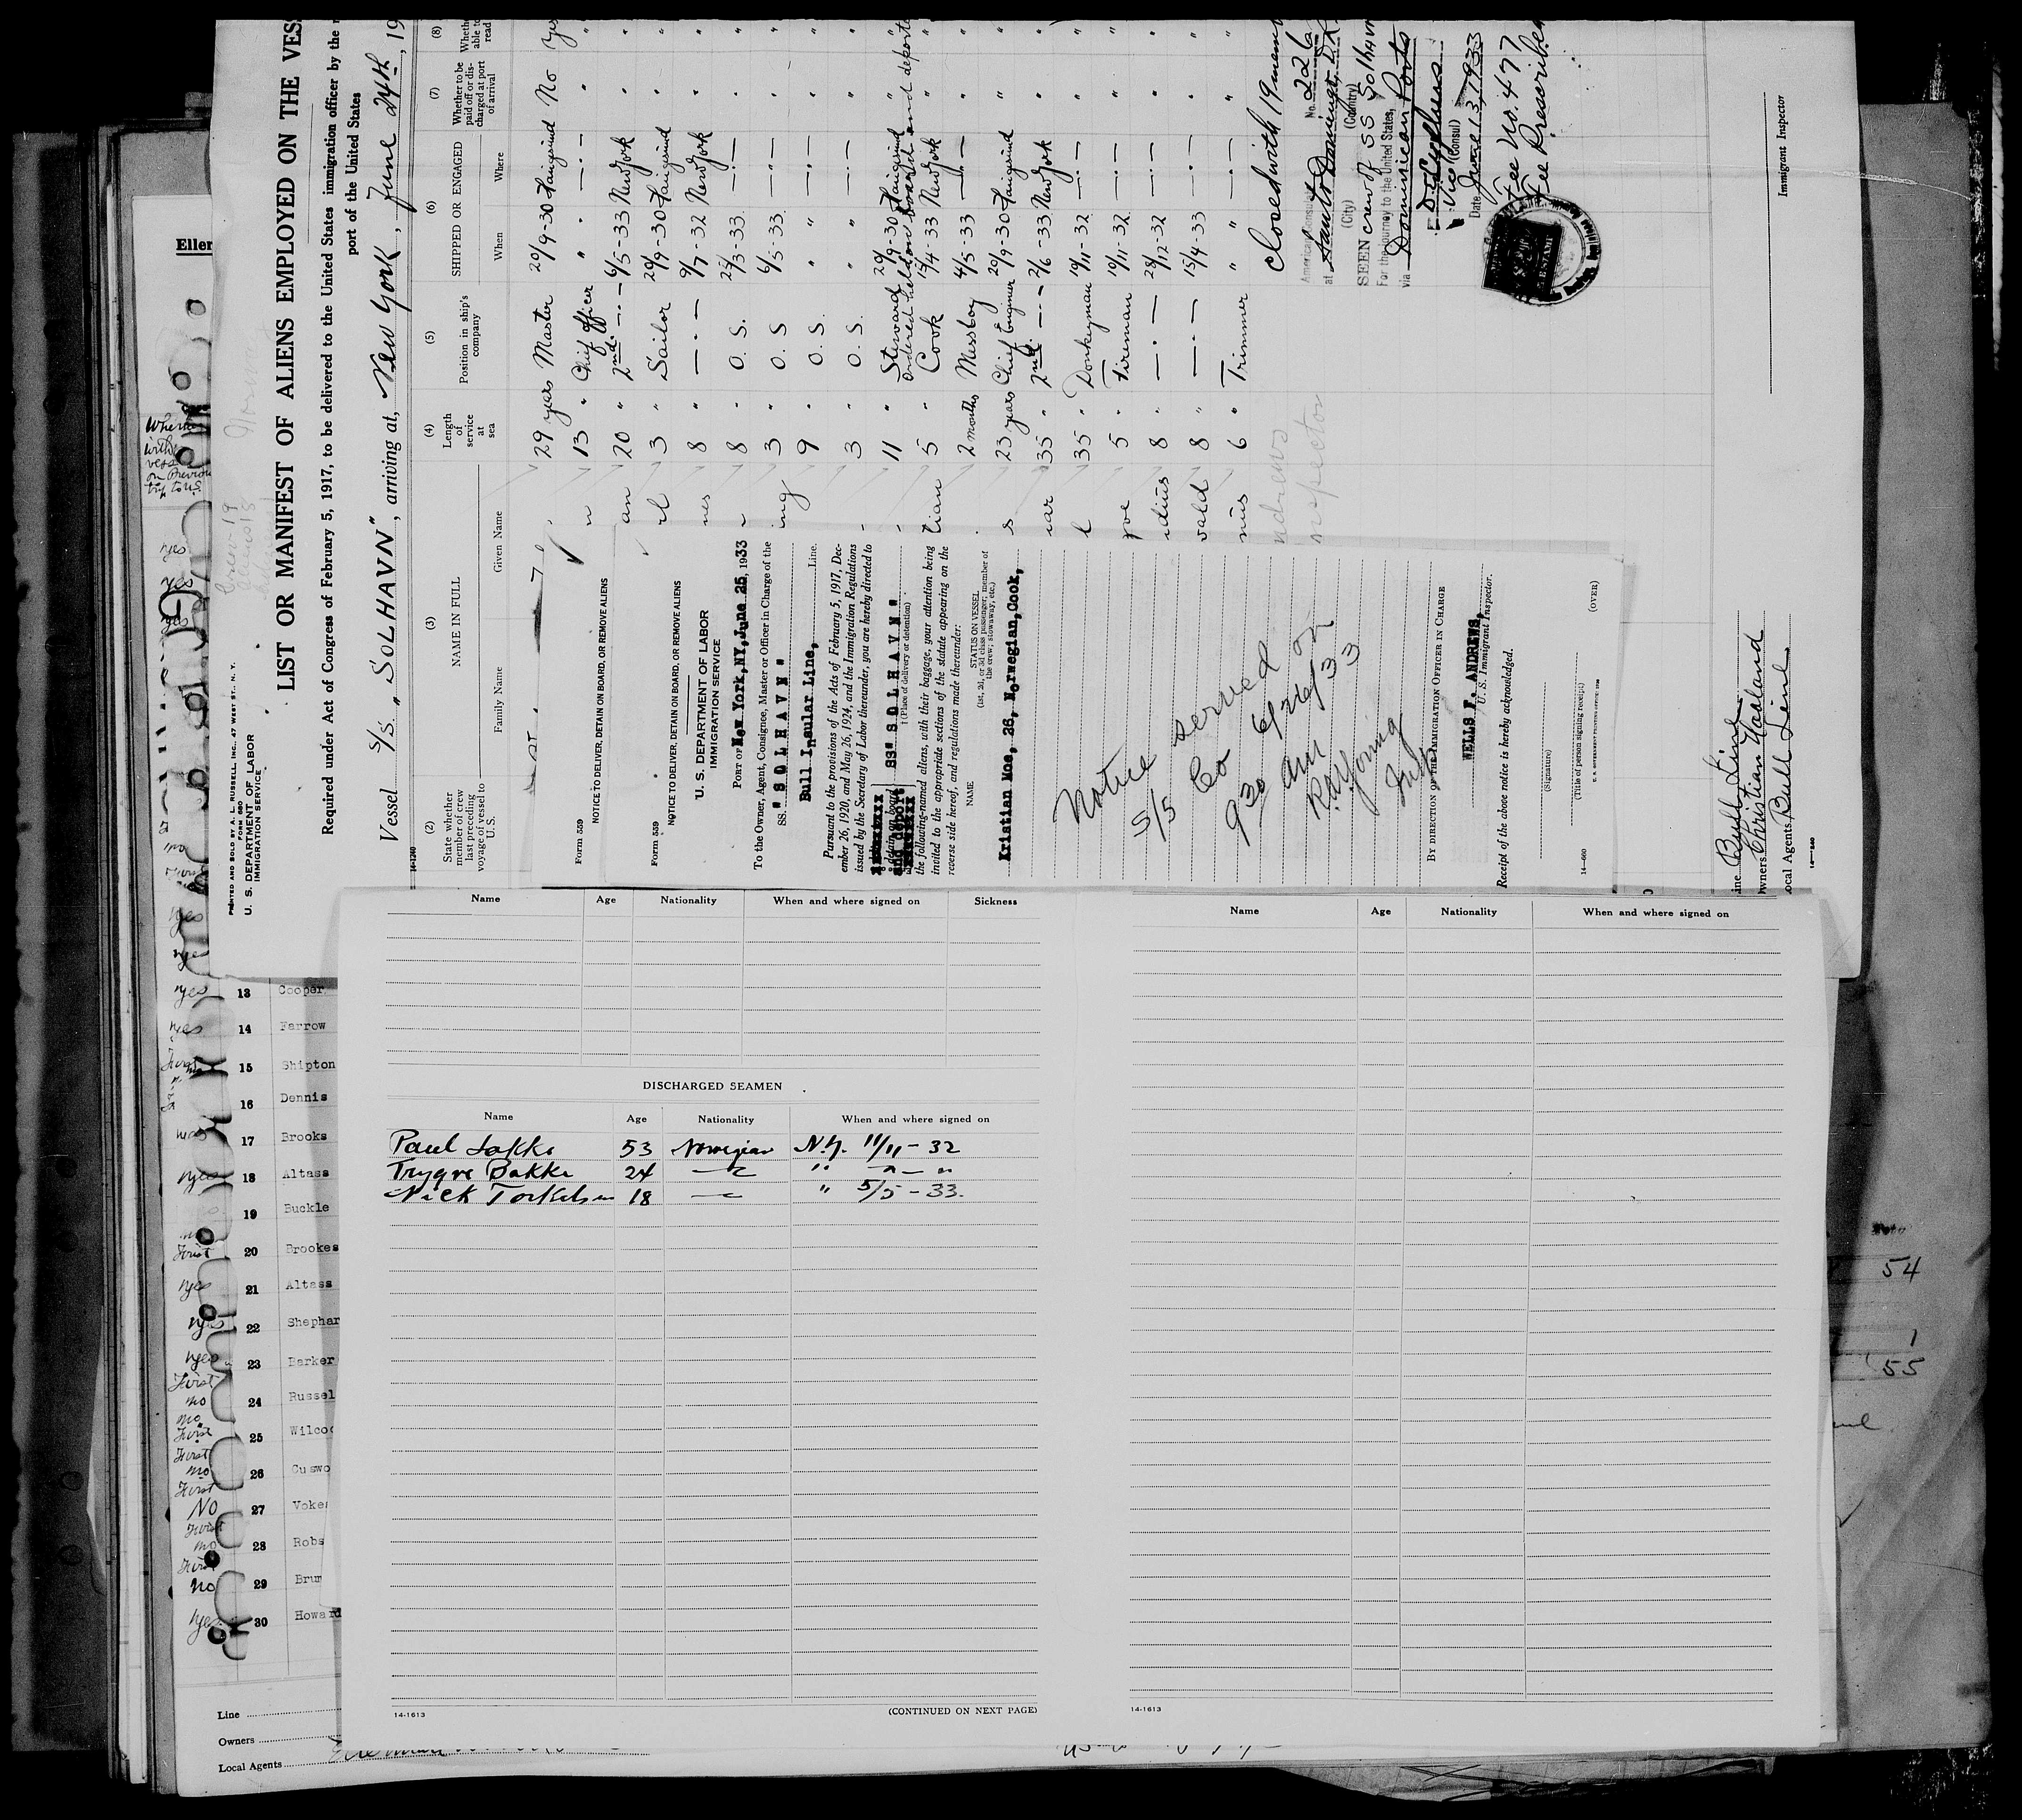 LIST OR MANIFEST OF ALIENS EMPLOYED ON THE VES
Required under Act of Congress of February 5, 1917, to be delivered to the United States immigration officer by the
port of the United States
Vessel S/S. "SOLHAVN", arriving at, New York, June 24th, 19
PRINTED AND SOLD BY A. L. RUSSELL, INC., 47 WEST ST., N. Y.
FORM 680
U. S. DEPARTMENT OF LABOR
IMMIGRATION SERVICE
(2) State whether member of crew last preceding voyage of vessel to U.S.
(3) NAME IN FULL
Family Name Given Name
(4) Length of service at sea
(5) Position in ship's company
(6) SHIPPED OR ENGAGED
When Where
(7) Whether to be paid off or discharged at port of arrival
(8) Whether able to read
29 years Master 20/9-30 Haugesund No Yes
13 " Chief officer " —.— " "
20 " 2nd. —.— 6/5-33 New York " "
3 " Sailor 20/9-30 Haugesund " "
8 " —.— 9/7-32 New York " "
8 " O. S. 23/3-33 —.— " "
3 " O. S 6/5-33 —.— " "
9 " O. S. " —.— " "
3 " O. S. " —.— " "
11 " Steward 20/9-30 Haugesund " "
Ordered held on board and deported
5 " Cook 15/4-33 New York " "
2 months Messboy 4/5-33 —.— " "
23 years Chief Engineer 20/9-30 Haugesund " "
35 " 2nd. —.— 2/6-33 New York " "
35 " Donkeyman 19/11-32 —.— " "
5 " Fireman 19/11-32 —.— " "
8 " —.— 28/12-32 —.— " "
8 " —.— 15/4-33 —.— " "
6 " Trimmer " —.— " "
Closed with 19 mem
American Consulate No. 226
at Santo Domingo, D.R.
(City) (Country)
SEEN crew of SS Solhavn
For the journey to the United States,
via Dominican Ports
Vice (Consul)
Date June 13, 1933
Fee No. 477
Fee Prescribed
Immigrant Inspector
Form 559
NOTICE TO DELIVER, DETAIN ON BOARD, OR REMOVE ALIENS
Form 559
NOTICE TO DELIVER, DETAIN ON BOARD, OR REMOVE ALIENS
U. S. DEPARTMENT OF LABOR
IMMIGRATION SERVICE
PORT OF New York, NY, June 25, 1933
To the Owner, Agent, Consignee, Master or Officer in Charge of the
SS. " S O L H A V N "
Bull Insular Line, Line.
Pursuant to the provisions of the Acts of February 5, 1917, Dec-
ember 26, 1920, and May 26, 1924, and the Immigration Regulations
issued by the Secretary of Labor thereunder, you are hereby directed to
detain on board SS" S O L H A V N "
and deport (Place of delivery or detention)
the following-named aliens, with their baggage, your attention being
invited to the appropriate sections of the statute appearing on the
reverse side hereof, and regulations made thereunder:
NAME STATUS ON VESSEL
(1st, 2d, or 3d class passenger; member of the crew; stowaway, etc.)
Kristian Moe, 26, Norwegian, Cook,
Notice served
S/S Co 6/26/33
9 30 am
BY DIRECTION OF THE IMMIGRATION OFFICER IN CHARGE
WELLS F. ANDREWS,
U. S. Immigrant Inspector.
Receipt of the above notice is hereby acknowledged.
(Signature)
(Title of person signing receipt)
14—660
(OVER)
Line Bull Line
Owners Christian Haaland
Local Agents Bull Line
Name Age Nationality When and where signed on Sickness
DISCHARGED SEAMEN
Name Age Nationality When and where signed on
Paul Lokke 53 Norwegian N.Y. 11/11-32
Trygve Bakke 24 —"— " "-"
Nick Torkelsen 18 —"— " 5/5-33.
14-1613
(CONTINUED ON NEXT PAGE)
Name Age Nationality When and where signed on
14-1613
Eller
yes
yes
13 Cooper
14 Farrow
15 Shipton
16 Dennis
17 Brooks
18 Altass
19 Buckle
20 Brookes
21 Altass
22 Shephar
23 Barker
24 Russel
25 Wilcoc
26 Cuswo
27 Voke
28 Robs
29 Brum
30 Howard
Line
Owners
Local Agents
54
1
55